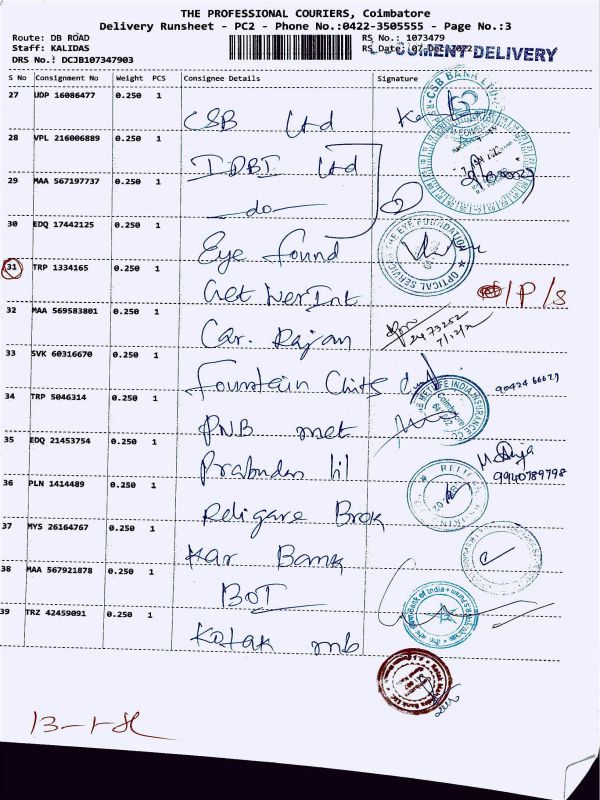 THE PROFESSIONAL COURIERS, Coimbatore
Delivery Runsheet - PC2 - Phone No.:0422-3505555 - Page No.:3
Route: DB ROAD
RS No.: 1073479
Staff: KALIDAS
RS Date: 07-Dec-2022
DOCUMENT DELIVERY
DRS No.: DCJB107347903
S No Consignment No Weight PCS Consignee Details Signature
27 UDP 16086477 0.250 1 CSB Ltd
28 VPL 216006889 0.250 1 IDBI Ltd
29 MAA 567197737 0.250 1 —do—
30 EDQ 17442125 0.250 1 Eye found
31 TRP 1334165 0.250 1 /P/s
32 MAA 569583801 0.250 1 Car. Rajan 7/12/2
33 SVK 60316670 0.250 1 Fountain Chits
34 TRP 5046314 0.250 1 PNB met
35 EDQ 21453754 0.250 1 9940789798
36 PLN 1414489 0.250 1 Religare Brok
37 MYS 26164767 0.250 1 Kar Bank
38 MAA 567921878 0.250 1 BOI
39 TRZ 42459091 0.250 1 Kotak mb
CSB BANK LTD
THE EYE FOUNDATION
OPTICAL SERVICES
METLIFE INDIA INSURANCE CO
Coimbatore
Bank of India